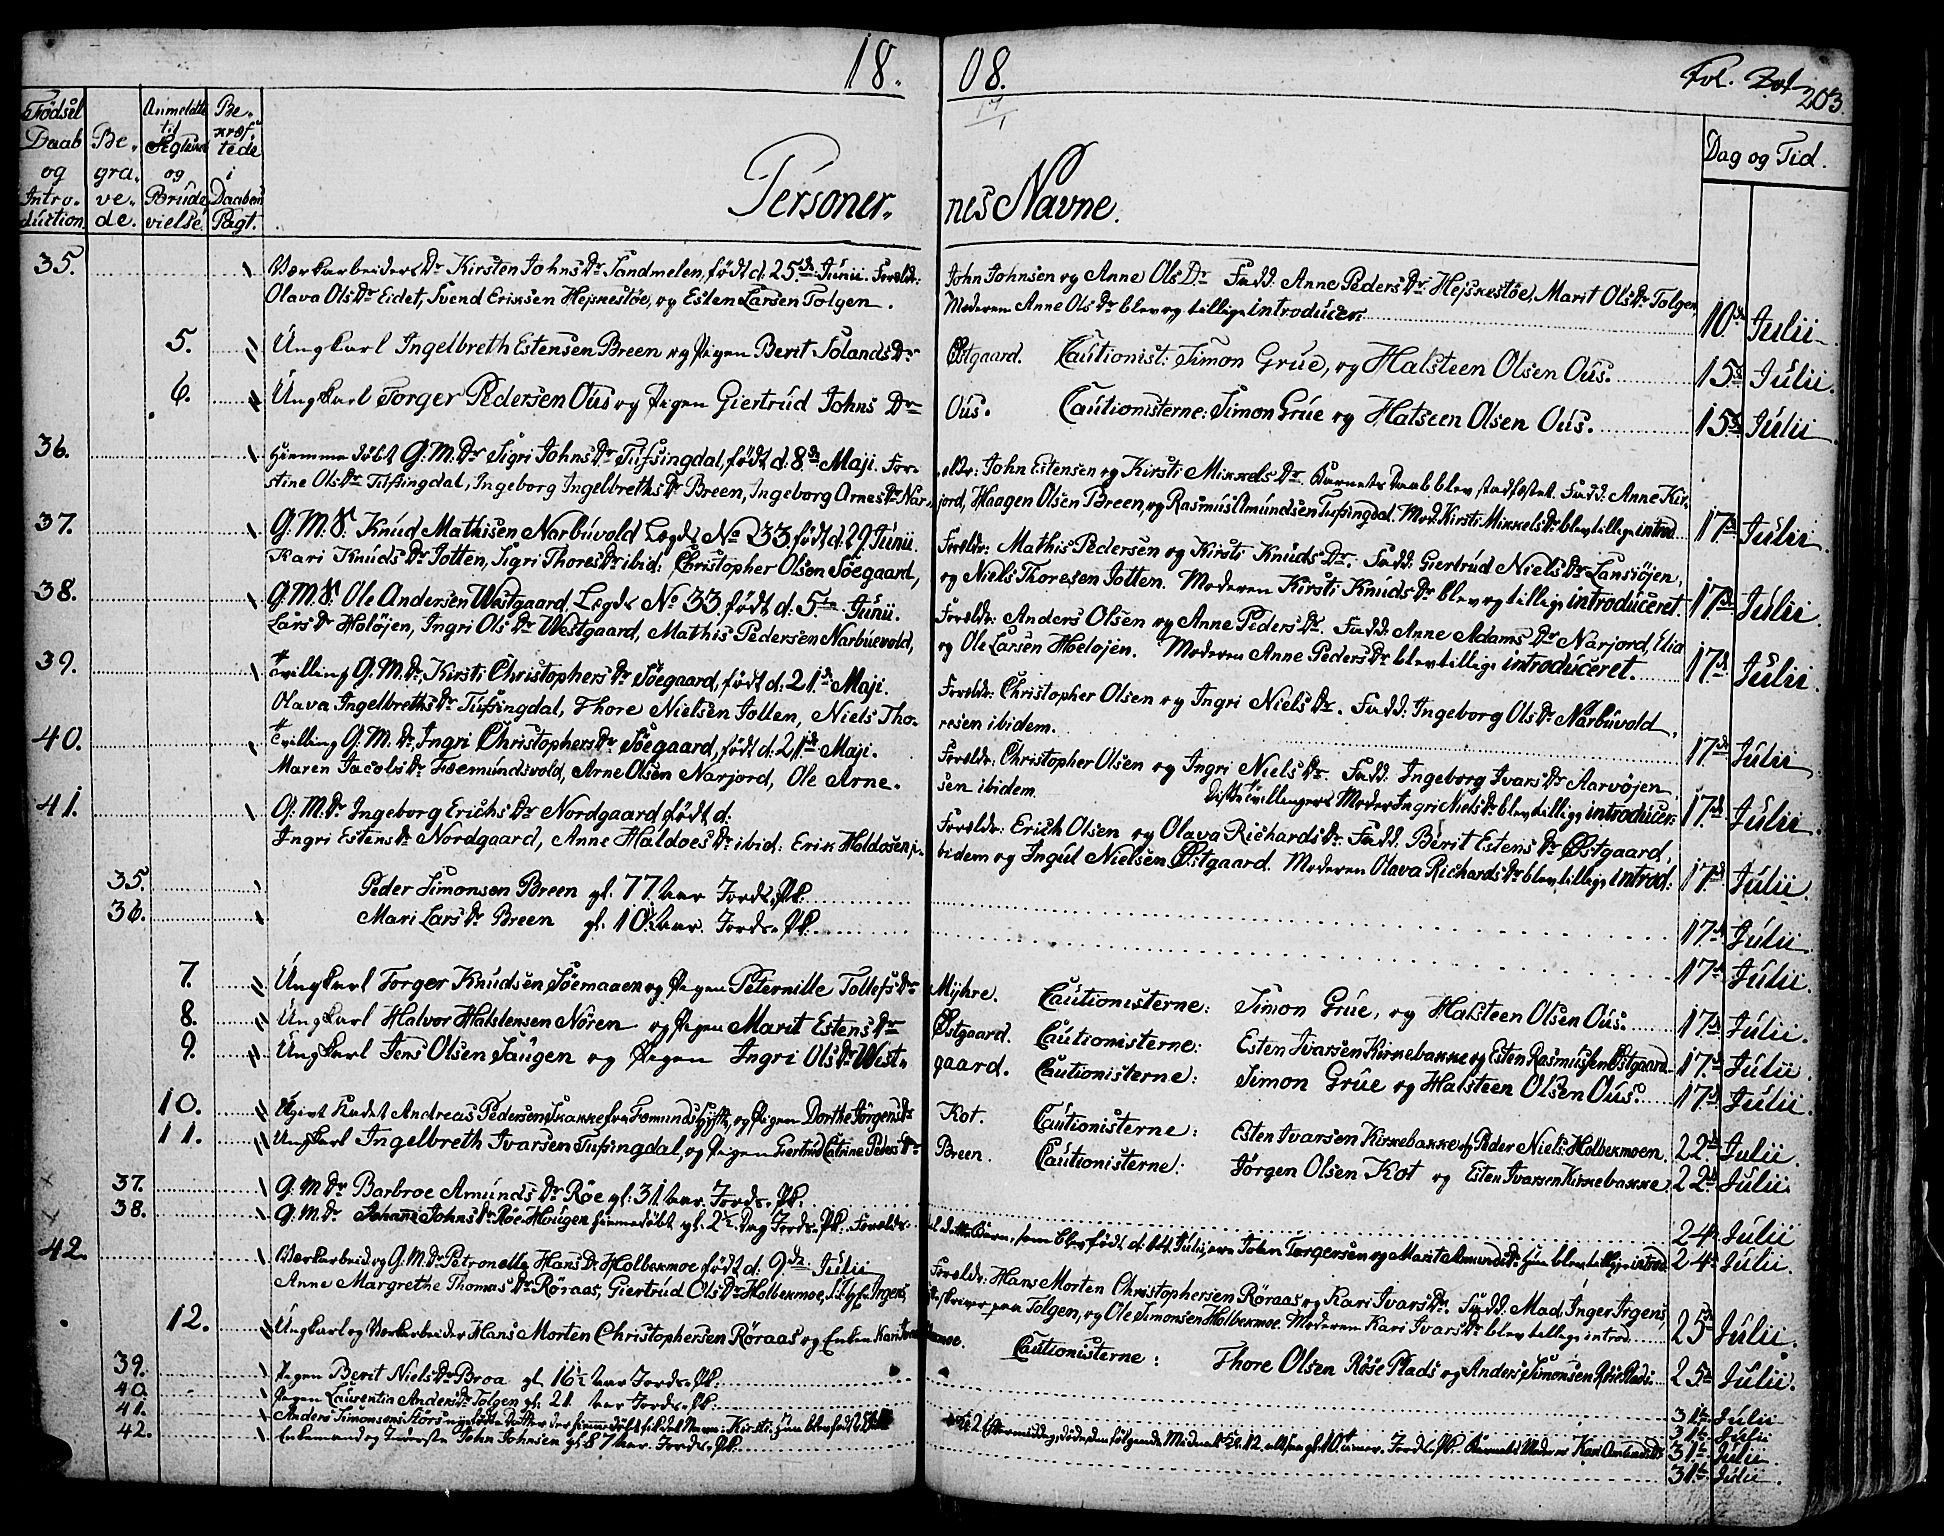 18. 08.
Fol. 203.
Fødsel Daab og Introduction
Begravede.
Anmeldte tilÆgteskab og Brudevielse.
Bekræftede i Daabens Pagt.
Personernes Navne.
Dag og Tid.
35. Værkarbeiders Dr Kirsten Johns Dr Sandmelen, født d: 25de Junii. Forældr: John Johnsen og Anne Ols Dr Fadd: Anne Peders Dr Hejskestøe, Marit Ols Dr Tolgen
Olava Ols Dr Eidet, Svend Eriksen Hejskestøe, og Esten Larsen Tolgen. Moderen Anne Ols Dr blev og tillige introducer: 10de Julii
5. Ungkarl Ingelbreth Estensen Breen og Pigen Berit Solands Dr Østgaard. Cautionist: Simon Grue, og Halsteen Olsen Ous. 15de Julii.
6. Ungkarl Torger Pedersen Ous og Pigen Giertrud Johns Dr Ous. Cautionisterne: Simon Grue og Halseen Olsen Ous. 15de Julii
36. Hiemmedøbt G: M: Dr Sigri Johns Dr Tufsingdal, født d: 8de Maji. Forældr: John Estensen og Kirsti Mikkels Dr Barnets Daab blev stadfæstet. Fadd: Anne Kir-
stine Ols Dr Tufsingdal, Ingeborg Ingelbreths Dr Breen, Ingeborg Arnes Dr Narjord, Haagen Olsen Breen, og Rasmus Amundsen Tufsingdal. Mod: Kirsti Mikkels Dr blev tillige introd. 17de Julii.
37. G: M: S: Knud Mathisen Narbuvold Legds No 33 født d: 29 Junii. Forældr: Mathis Pedersen og Kirsti Knuds Dr. Fadd: Giertrud Niels Dr Lansiøjen,
Kari Knuds Dr Jotten, Sigri Thores Dr ibid: Christopher Olsen Søegaard, og Niels Thoresen Jotten. Moderen Kirsti Knuds Dr blev og tillige introduceret. 17de Julii.
38. G: M: S: Ole Andersen Westgaard, Legds No 33, født d: 5te Junii. Forældr: Anders Olsen og Anne Peders Dr. Fadd: Anne Adams Dr Narjord,
Lars Dr Holøjen, Ingri Ols Dr Westgaard, Mathis Pedersen Narbuevold, og Ole Larsen Hoeløjen. Moderen Anne Peders Dr blev tillige introduceret. 17de Julii.
39. Tvilling G: M: Dr Kirsti Christophers Dr Søegaard, født d: 21de Maji. Forældr: Christopher Olsen og Ingri Niels Dr. Fadd: Ingeborg Ols Dr Narbuvold,
Olava Ingelbreths Dr Tufsingdal, Thore Nielsen Jotten, Niels Thoresen ibidem. 17de Julii
40. Tvilling G: M: Dr Ingri Christophers Dr Søegaard, født d: 21de Maji. Forældr: Christopher Olsen og Ingri Niels Dr. Fadd: Ingeborg Ivars Dr Aarvøjen,
Maren Jacobs Dr Fæmundsvold, Arne Olsen Narjord, Ole Arnesen ibidem. Disse Tvillingers Moder Ingri Niels Dr blev tillige introducer: 17de Julii.
41. G: M: Dr Ingeborg Erichs Dr Nordgaard født d: Forældr: Erich Olsen og Olava Richards Dr. Fadd: Berit Estens Dr Østgaard,
Ingri Estens Dr Nordgaard, Anne Haldoes Dr ibid: Erik Haldosen ibidem og Ingul Nielsen Østgaard. Moderen Olava Richards Dr blev tillige introd: 17de Julii.
35. Peder Simonsen Breen gl. 77 Aar Jords. Pk. 17de Julii
36. Mari Lars Dr Breen gl. Aar. Jords. Pk. 17de Julii.
7. Ungkarl Torger Knudsen Søemaaen og Pigen Peternille Tollefs Dr Myhre. Cautionisterne: Simon Grue, og Halsteen Olsen Ous. 17de Julii.
8. Ungkarl Halvor Halstensen Nøren og Pigen Marit Estens Dr Østgaard. Cautionisterne: Esten Ivarsen Kirkebakke og Esten Rasmusen Østgaard 17de Julii.
9. Ungkarl Jens Olsen Saugen og Pigen Ingri Ols Dr Westgaard. Cautionisterne: Simon Grue og Halsteen Olsen Ous. 17de Julii.
10. Andreas Pedersen Skakke fra Fæmunds Hytte, og Pigen Dorthe Jørgens Dr Kot. Cautionisterne: Esten Ivarsen Kirkebakke og Peder Niels: Holbekmoen. 22de Julii.
11. Ungkarl Ingelbreth Ivarsen Tufsingdal, og Pigen Giertrud Catrine Peders Dr Breen. Cautionisterne: Jørgen Olsen Kot og Esten Ivarsen Kirkebakke. 22de Julii.
37. G: M: Dr Barbroe Amunds Dr Røe gl. 31 Aar. Jords. Pk. 24 Julii
38. G: M: Dr Johanne Johns Dr Røe-Hougen hiemmedøbt gl. 2½ Dag Jords. Pk. Forældr til dette Barn, som blev født d: 14 Julii, ere John Torgersen og Marit Amunds Dr hun blev tillige introd. 24 Julii.
42. Værkarbeid. og G: M: Dr Petronelle Hans Dr Holbekmoe født d: 9de Julii Forældr: Hans Morten Christophersen Røraas og Kari Ivars Dr. Fadd: Mad. Inger Irgens,
Anne Margrethe Thomas Dr Røraas, Giertrud Ols Dr Holbekmoe, Irgens, skriver paa Tolgen, og Ole Simonsen Holbekmoe. Moderen Kari Ivars Dr blev tillige introd. 25de Julii.
12. Ungkarl og Værkarbeider Hans Morten Christophersen Røraas og Enken Kari Cautionisterne: Thore Olsen Røse Plads og Anders Simonsen Røse Plads. 25de Julii.
39. Pigen Berit Niels Dr Broa gl. 16½ Aar Jords. Pk. 31te Julii
40. Pigen Laurentia Anders Dr Tolgen gl. 21 Aar Jords. Pk. 31te Julii
41. Anders Simonsens fødte Datter der hiemmedøbt Navn: Kirsti. hun blev født 2 Eftermiddag, døde den følgende Midnat Kl. 12 altsaa gl. 10 timer. Jords. Pk. Barnets Moder Kari Amunds Dr 31te Julii.
42. Enkemand og Inderste John Johnsen gl. 87 Aar. Jords. Pk. 31te Julii